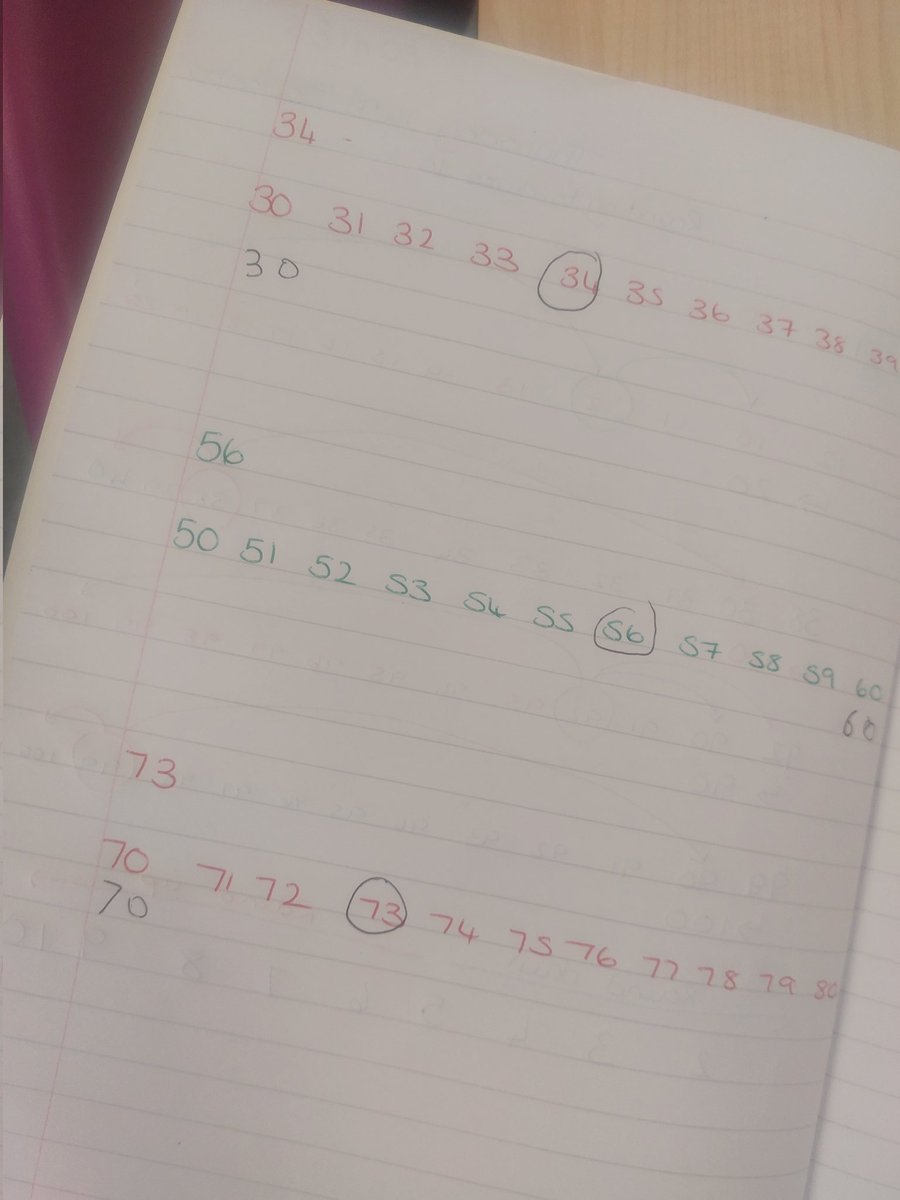 34 -
30 31 32 33 34 35 36 37 38 39
30
56
50 51 52 53 54 55 56 57 58 59 60
60
73
70 71 72 73 74 75 76 77 78 79 80
70